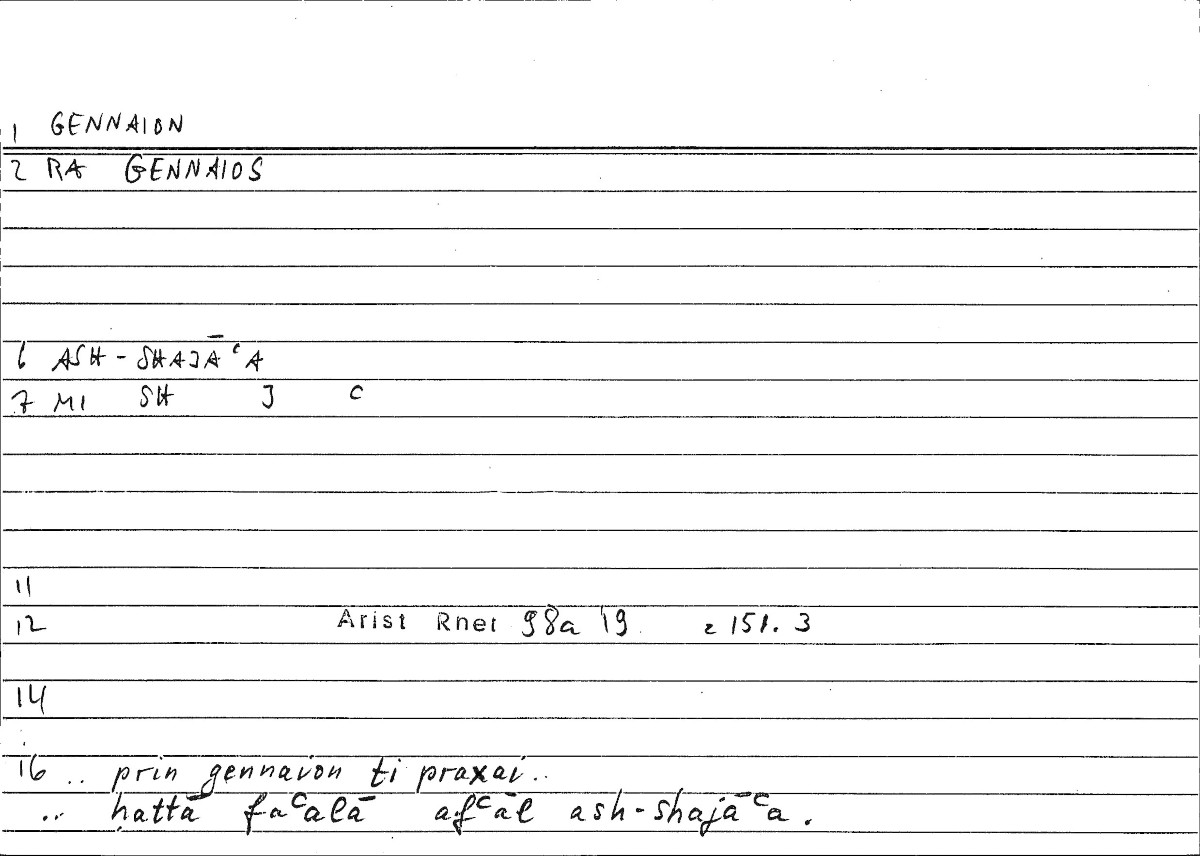 1 GENNAION
2 RA GENNAIOS
6 ASH-SHAJĀᶜA
7 MI SH J C
11
12 Arist Rhet 98a 19 = 151.3
14
16 .. prin gennaion ti praxai..
.. ḥattā faᶜalā afᶜāl ash-shajāᶜa.